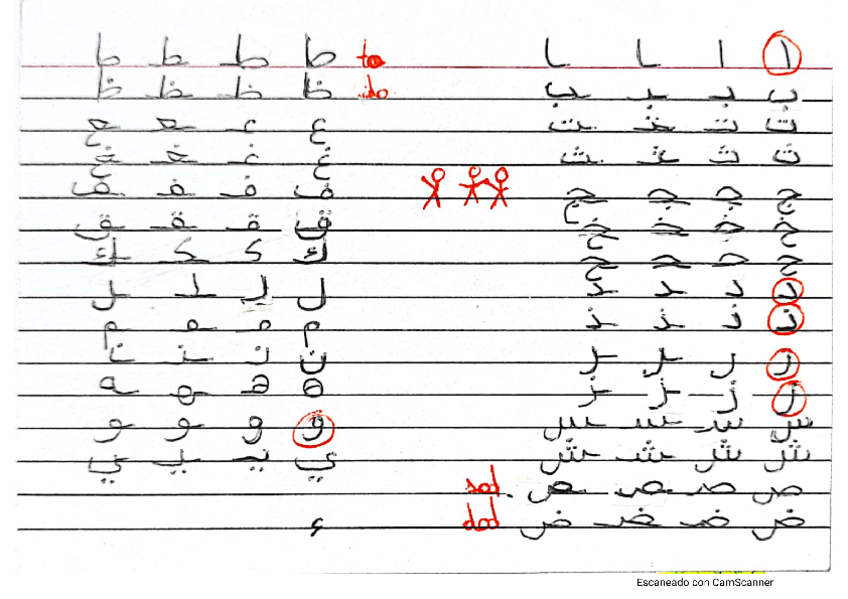 ا ا ـا ـا
ب بـ ـبـ ـب
ت تـ ـتـ ـت
ث ثـ ـثـ ـث
ج جـ ـجـ ـج
خ خـ ـخـ ـخ
ح حـ ـحـ ـح
د د ـد ـد
ذ ذ ـذ ـذ
ر ر ـر ـر
ز ز ـز ـز
س سـ ـسـ ـس
ش شـ ـشـ ـش
ص صـ ـصـ ـص sad
ض ضـ ـضـ ـض dad
ta ط طـ ـطـ ـط
ظ ظـ ـظـ ـظ
ع عـ ـعـ ـع
غ غـ ـغـ ـغ
ف فـ ـفـ ـف
ق قـ ـقـ ـق
ك كـ ـكـ ـك
ل لـ ـلـ ـل
م مـ ـمـ ـم
ن نـ ـنـ ـن
ه هـ ـهـ ـه
و و ـو ـو
ي يـ ـيـ ـي
ء
Escaneado con CamScanner